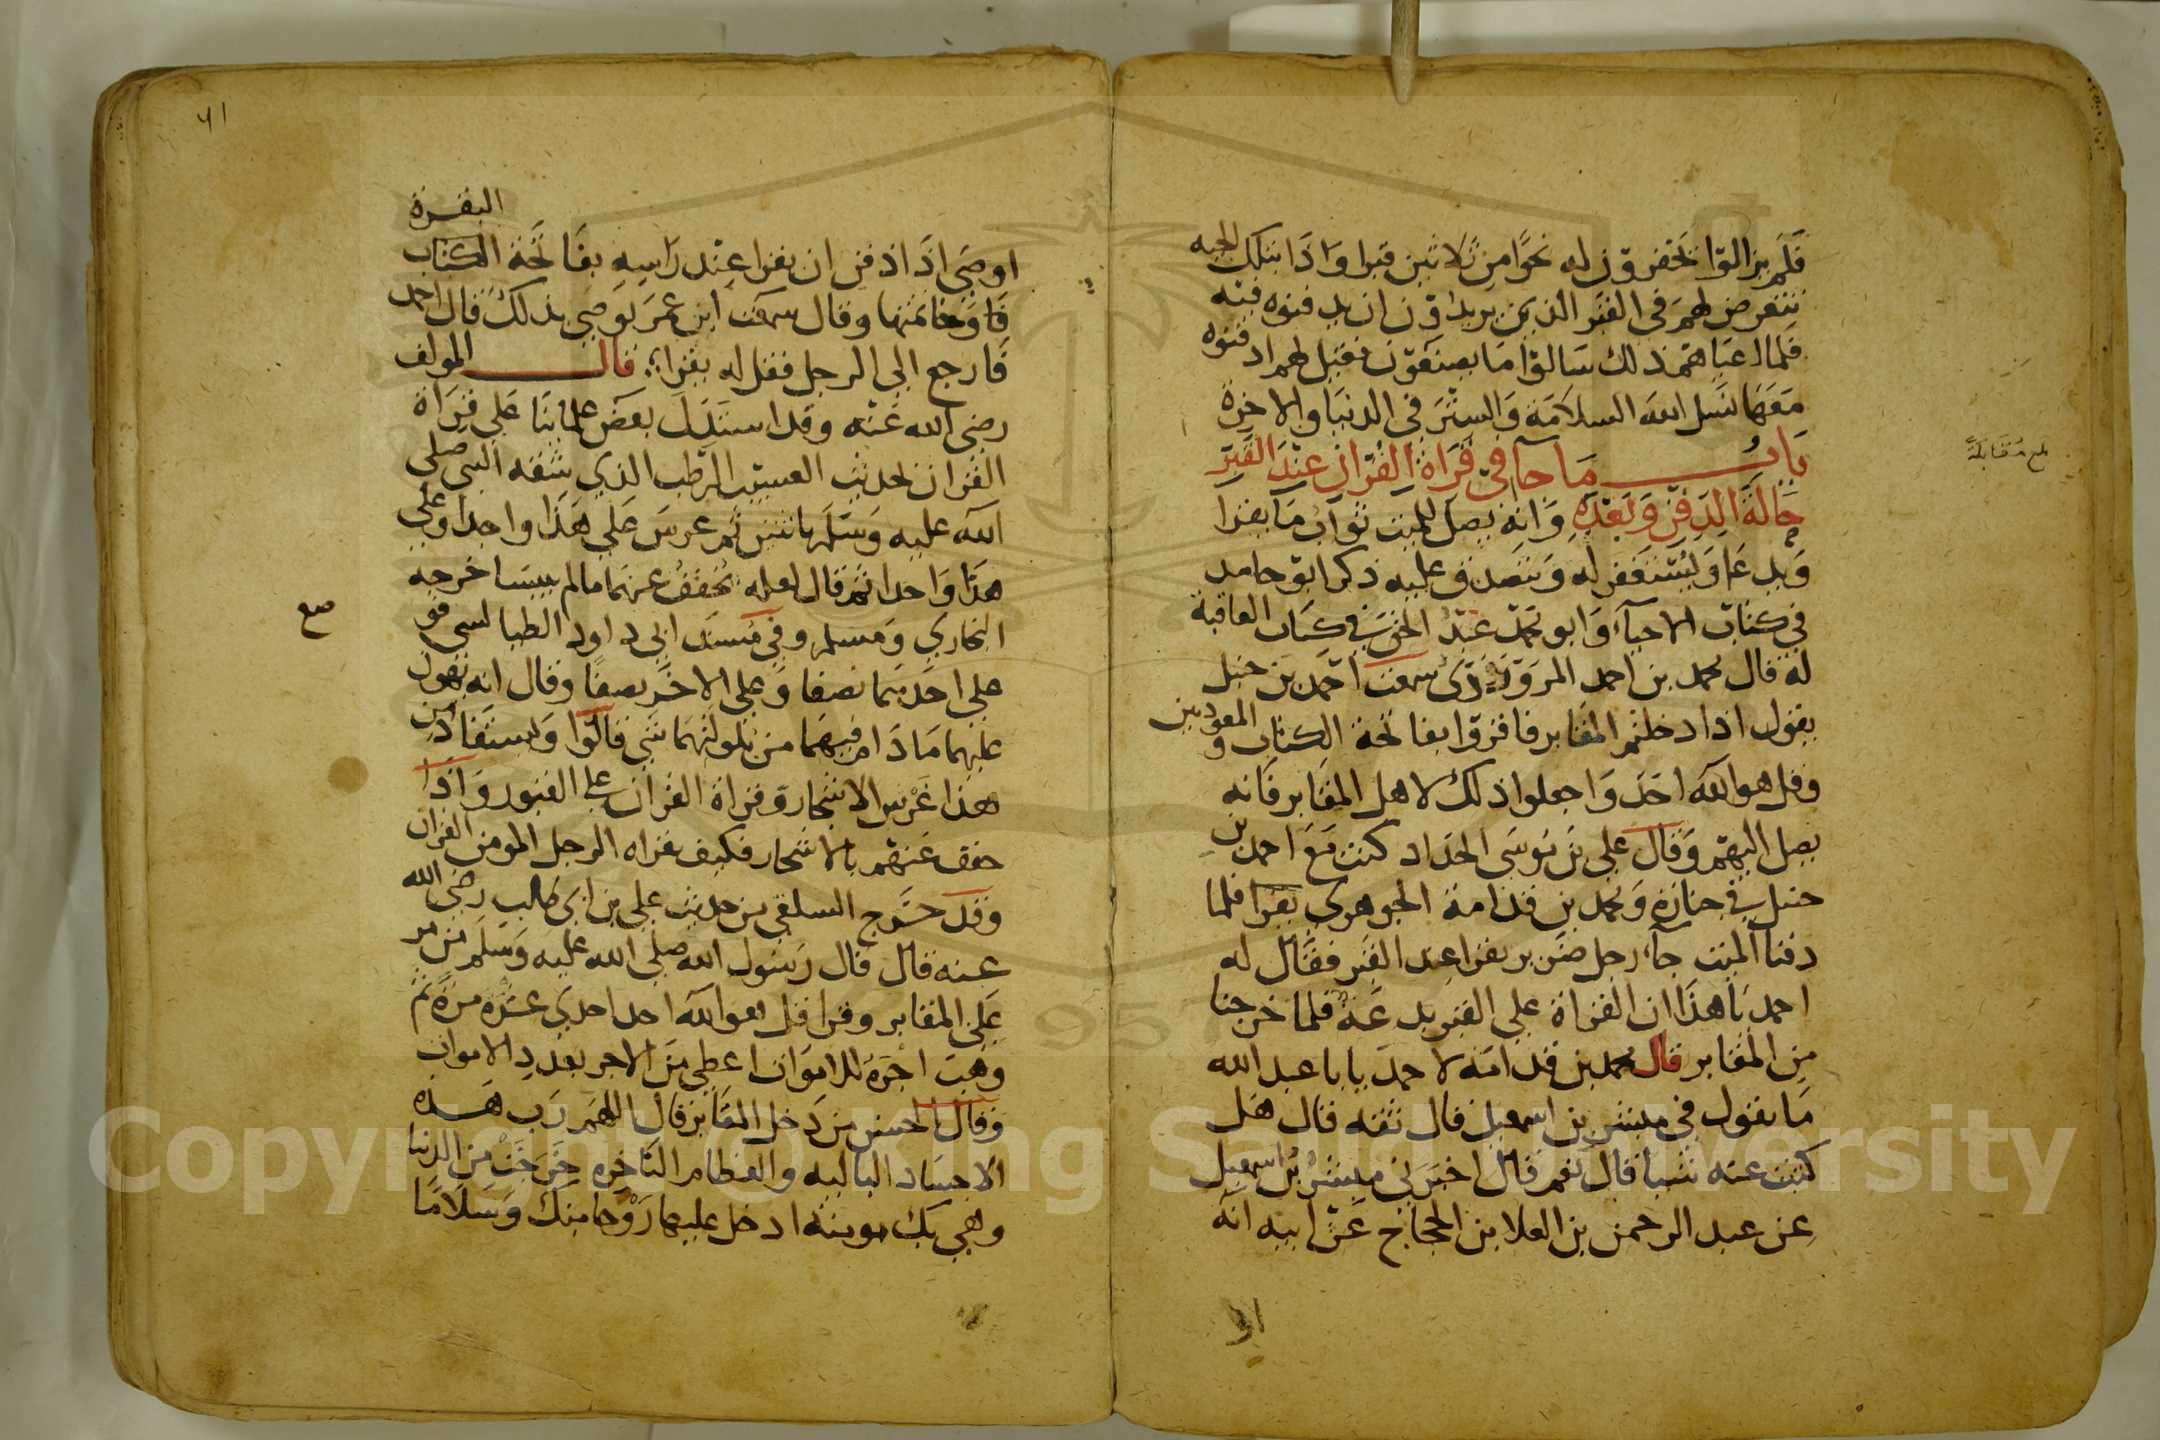 فلم يزالوا يحفرون له نحوا من ثلاثين قبرا واذا بتلك الحيه
تتعرض لهم في القبر الذي يريدون ان يدفنوه فيه
فلما اعياهم ذلك سالوا ما يصنعون فقيل لهم ادفنوه
معها نسل الله السلامة والستر في الدنيا والاخرة
باب ما جآ في قراة القران عند القبر
حالة الدفن وبعده وانه يصل للميت ثواب ما يقرا
ويدعا ويستغفر له ويتصدق عليه ذكر ابو حامد
في كتاب الاحيآء وابو محمد عبد الحق في كتاب العاقبة
له قال محمد بن احمد المروروذي سمعت احمد بن حنبل
يقول اذا دخلتم المقابر فاقروا بفاتحة الكتاب والمعوذتين
وقل هو الله احد واجعلوا ذلك لاهل المقابر فانه
يصل اليهم وقال علي بن موسى الحداد كنت مع احمد بن
حنبل في جنازة ومحمد بن قدامة الجوهري يقرا فلما
دفنا الميت جآء رجل ضرير يقرا عند القبر فقال له
احمد يا هذا ان القراة علي القبر بدعة فلما خرجنا
من المقابر قال محمد بن قدامة لاحمد يا با عبد الله
ما تقول في مبشر بن اسمعيل قال ثقه قال هل
كتبت عنه شيا قال نعم قال اخبرني مبشر بن اسمعيل
عن عبد الرحمن بن العلا بن الحجاج عن ابيه انه
بلغ مقابلة
٦١
البقرة
اوصي اذا دفن ان يقرا عند راسه بفاتحة الكتاب
وخاتمتها وقال سمعت ابن عمر يوصي بذلك قال احمد
فارجع الي الرجل فقل له يقرا قال المولف
رضي الله عنه وقد استدل بعض علمائنا علي قراة
القران بحديث العسيب الرطب الذي شقه النبي صلي
الله عليه وسلم باثنين ثم غرس علي هذا واحدا وعلي
هذا واحدا ثم قال لعله يخفف عنهما ما لم ييبسا خرجه
البخاري ومسلم وفي مسند ابي داود الطيالسي فوضع
علي احدهما نصفا وعلي الاخر نصفا وقال انه يهون
عليهما ما دام فيهما من بلولتهما شي قالوا ويستفاد من
هذا غرس الاشجار وقراة القران علي القبور واذا
خفف عنهم بالاشجار فكيف بقراه الرجل المومن القران
وقد خرج السلفي من حديث علي بن ابي طالب رضي الله
عنه قال قال رسول الله صلي الله عليه وسلم من مر
علي المقابر وقرا قل هو الله احد احدي عشره مرة ثم
وهب اجره للاموات اعطي من الاجر بعدد الاموات
وقال الحسن من دخل المقابر فقال اللهم رب هذه
الاجساد الباليه والعظام الناخره خرجت من الدنيا
وهي بك مومنة ادخل عليها روحا منك وسلاما
Copyright © King Saud University